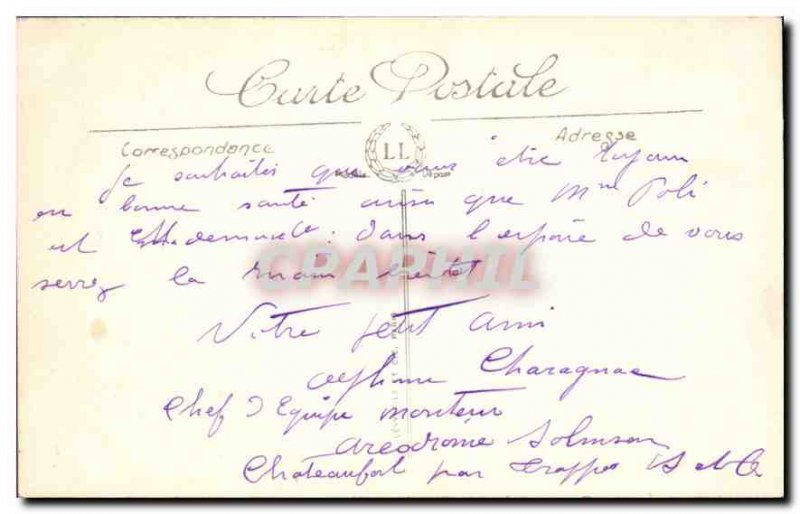 Carte Postale
Correspondance
Adresse
LL
Je souhaites que vous être
en bonne santé ainsi que Mme Poli
et Mademoiselle. dans l'espoire de vous
serrez la main
CPAPHIL
Votre petit ami
Alphonse Charagnac
Chef d'Equipe monteur
Areodrome
Chateaufort par Trappes S et O